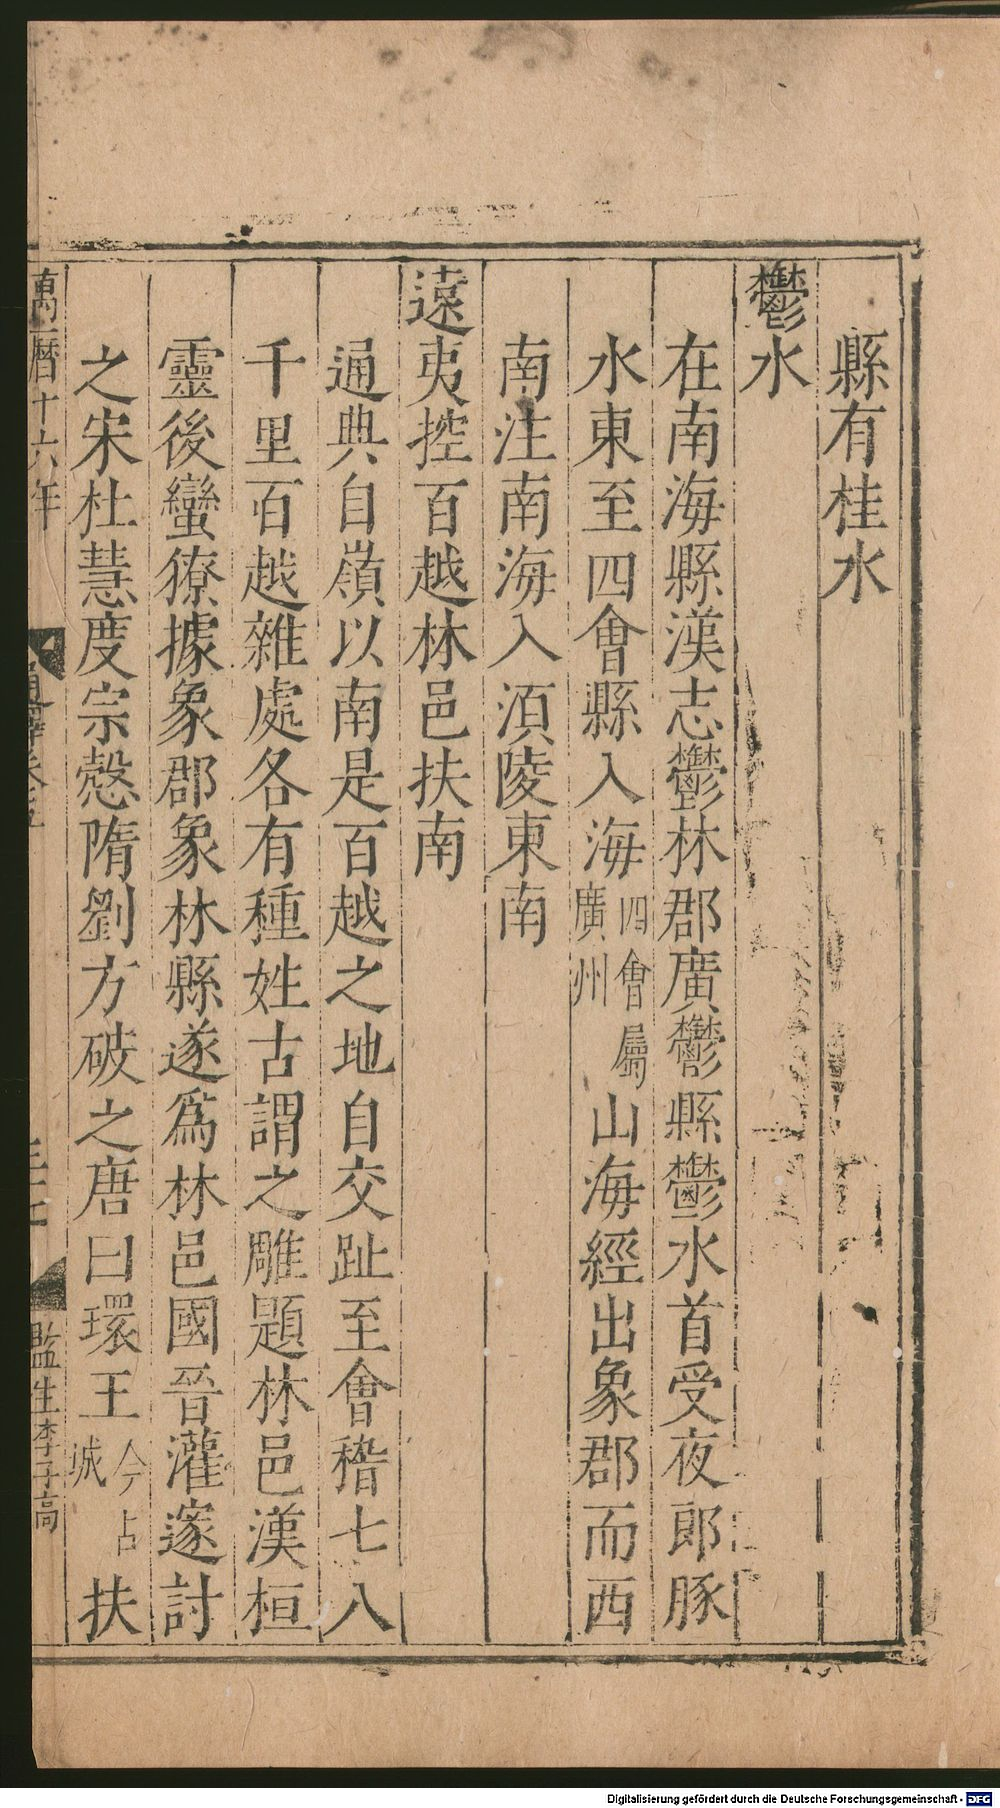 縣有桂水
鬱水
在南海縣漢志鬱林郡廣鬱縣鬱水首受夜郎豚
水東至四會縣入海四會屬廣州山海經出象郡而西
南注南海入湏陵東南
遠夷控百越林邑扶南
通典自嶺以南是百越之地自交趾至會稽七八
千里百越雜處各有種姓古謂之雕題林邑漢桓
靈後蠻獠據象郡象林縣遂爲林邑國晉灌邃討
之宋杜慧度宗慤隋劉方破之唐曰環王今占城扶
萬曆十六年
監生李子高
Digitalisierung gefördert durch die Deutsche Forschungsgemeinschaft - DFG